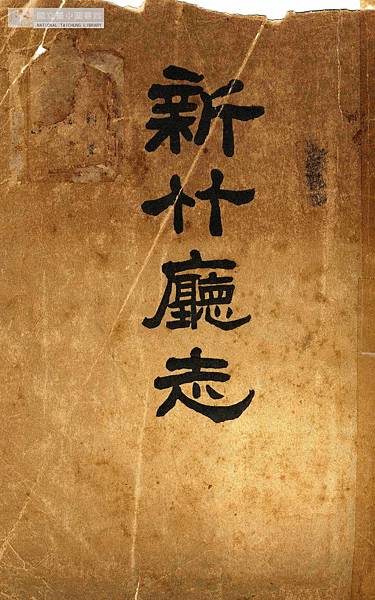 國立臺中圖書館
NATIONAL TAICHUNG LIBRARY
新竹廳志